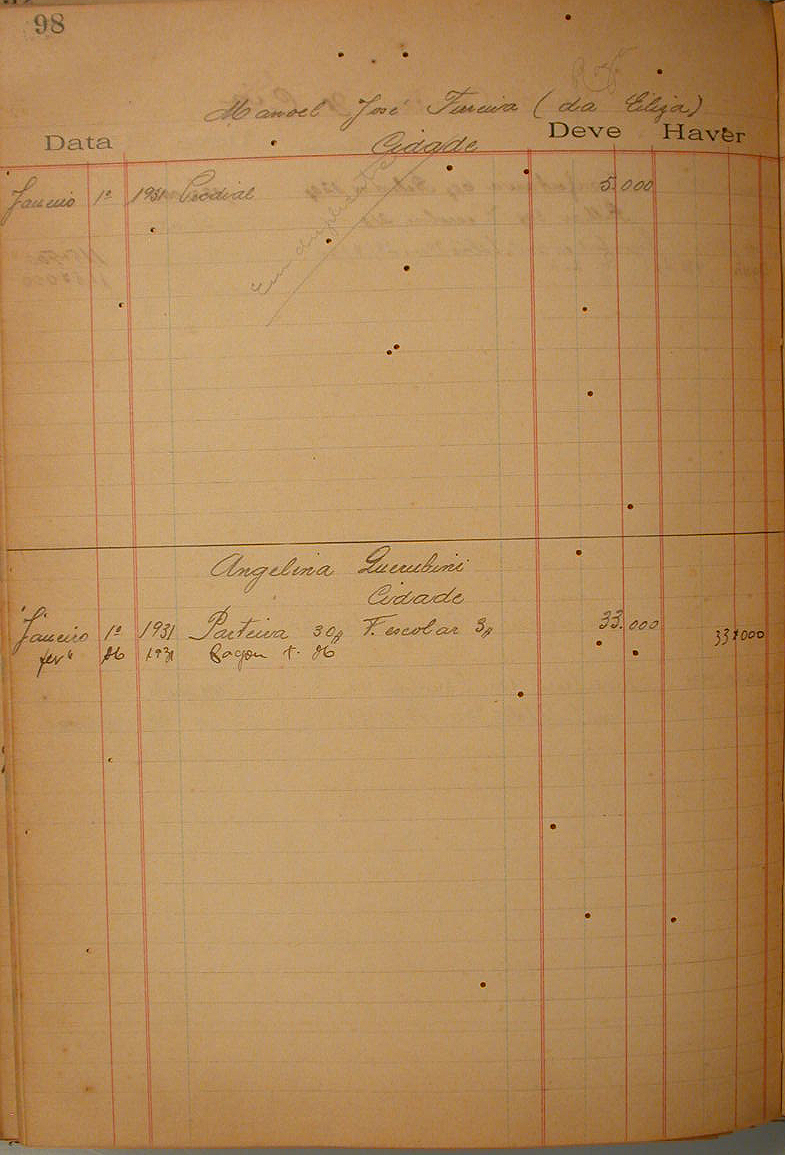 98
Manoel José Ferreira (da Eliza)
Data Cidade Deve Haver
Janeiro 1º 1931 Predial 5.000
Em duplicata
Angelina Querubini
Cidade
Janeiro 1º 1931 Parteira 30$ F. escolar 3$ 33.000
fevº 26 1931 Pagou t. 26 33$000